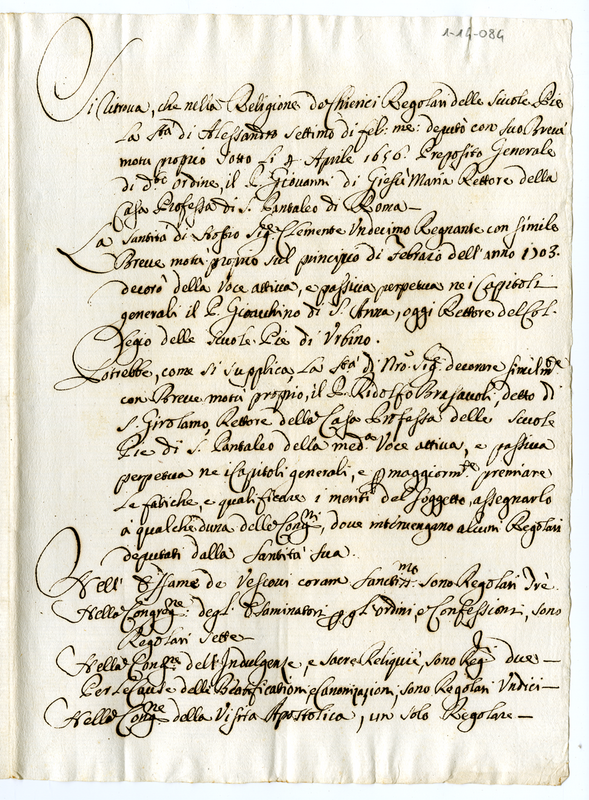 1-14-084
Si ritrova, che nella Religione de Chierici Regolari delle Scuole Pie
la Sta di Alessandro Settimo di fel: me: deputò con suo Breve
motu proprio sotto li 4 Aprile 1656. Preposito Generale
di do Ordine, il P. Giovanni di Giesù Maria Rettore della
Casa Professa di S. Pantaleo di Roma —
La Santità di Nostro Sigre Clemente Undecimo Regnante con simile
Breve motu proprio sul principio di Febraro dell' anno 1703.
decorò della Voce attiva, e passiva perpetua ne i Capitoli
generali il P. Gioacchino di S. Anna, oggi Rettore del Col-
legio delle Scuole Pie di Urbino.
Potrebbe, come si supplica, la Sta di Nro. Sigre decorare similmte
con Breve motu proprio, il P. Ridolfo Brasavoli, detto di
S. Girolamo, Rettore della Casa Professa delle Scuole
Pie di S. Pantaleo della meda Voce attiva, e passiva
perpetua ne i Capitoli generali, e p maggiormte premiare
le fatiche, e qualificare i meriti del soggetto, assegnarlo
à qualcheduna delle Congni, dove intervengano alcuni Regolari
deputati dalla Santità Sua.
Nell' Essame de Vescovi coram Sanctmo sono Regolari Tre.
Nella Congrege degl' Esaminatori p gl' Ordini, e Confessioni, sono
Regolari sette
Nella Congne dell' Indulgenze, e sacre Reliquie, sono Regri due —
Per le Cause delle Beatificationi, e Canonizazioni, sono Regolari Undici —
Nella Congne della Visita Apostolica, un solo Regolare —